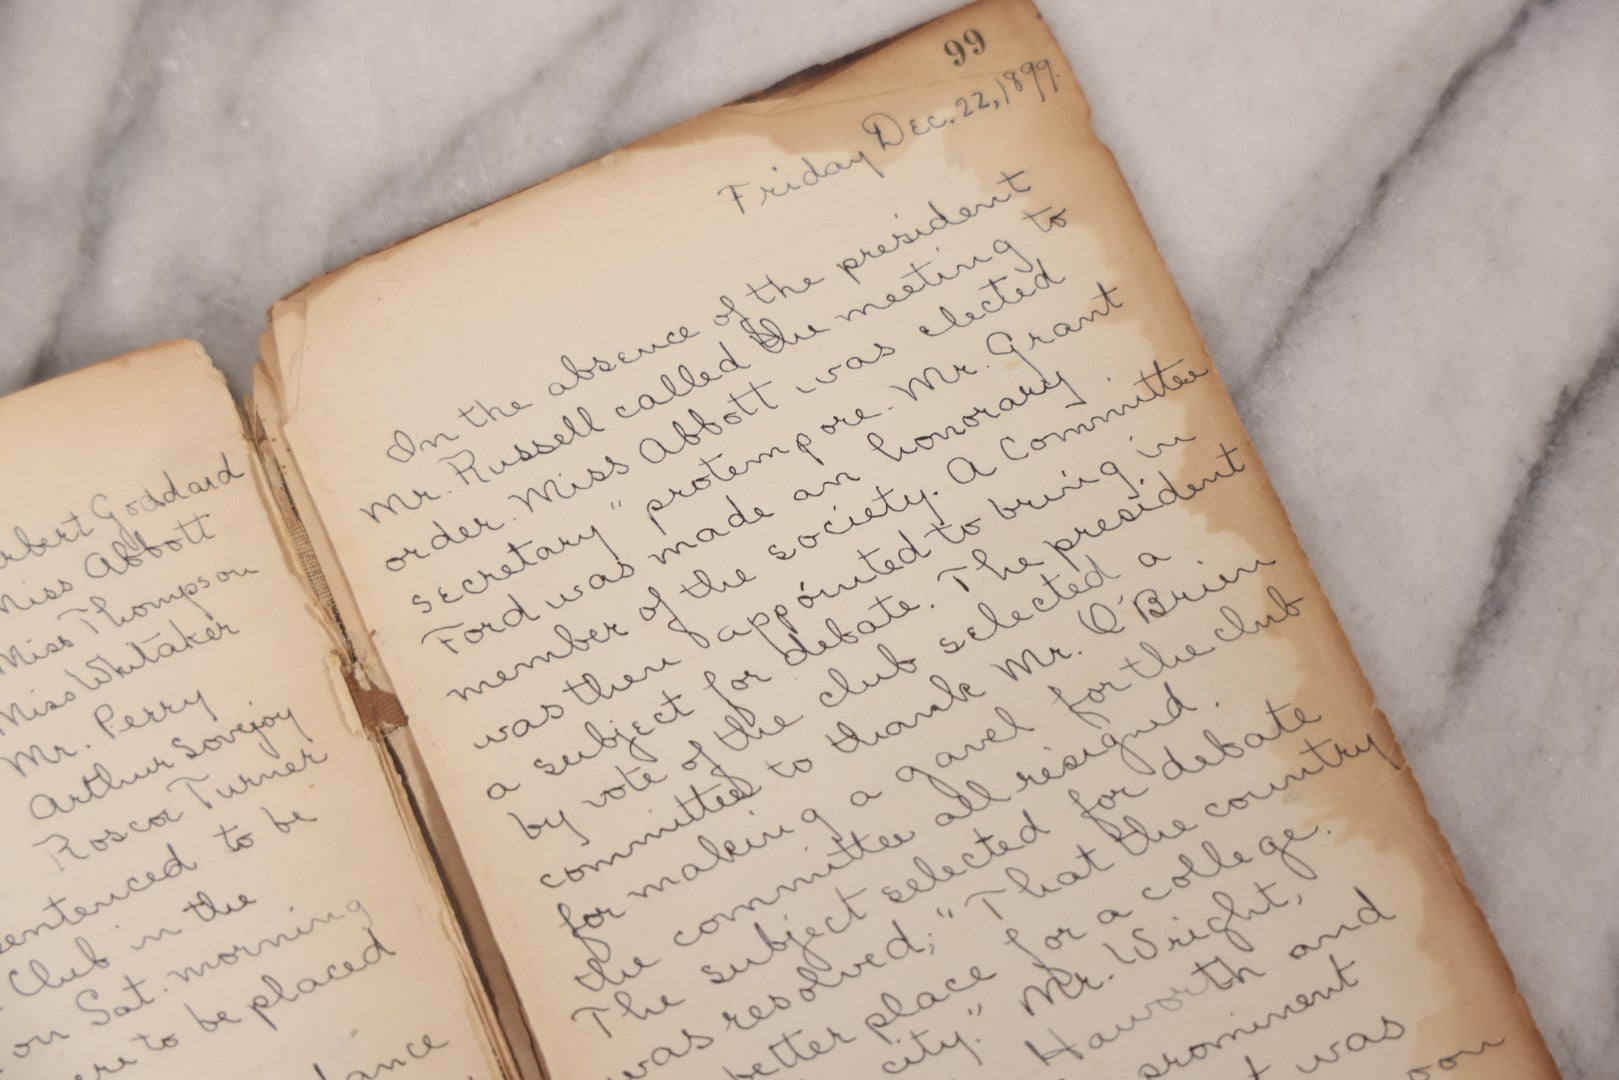 Goddard
Miss Abbott
Miss Thompson
Miss Whitaker
Mr. Perry
Arthur Lovejoy
Roscoe Turner
sentenced to be
Club in the
on Sat. morning
to be placed
99
Friday Dec. 22, 1899.
In the absence of the president
Mr. Russell called the meeting to
order. Miss Abbott was elected
secretary "protempore. Mr. Grant
Ford was made an honorary
member of the society. A Committee
was then appointed to bring in
a subject for debate. The president
by vote of the club selected a
committee to thank Mr. O'Brien
for making a gavel for the club
the committee all resigned.
The subject selected for debate
was resolved; "That the country
better place for a college.
city." Mr. Wright,
Haworth and
prominent
was